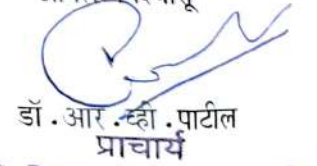 डॉ . आर . व्ही . पाटील
प्राचार्य